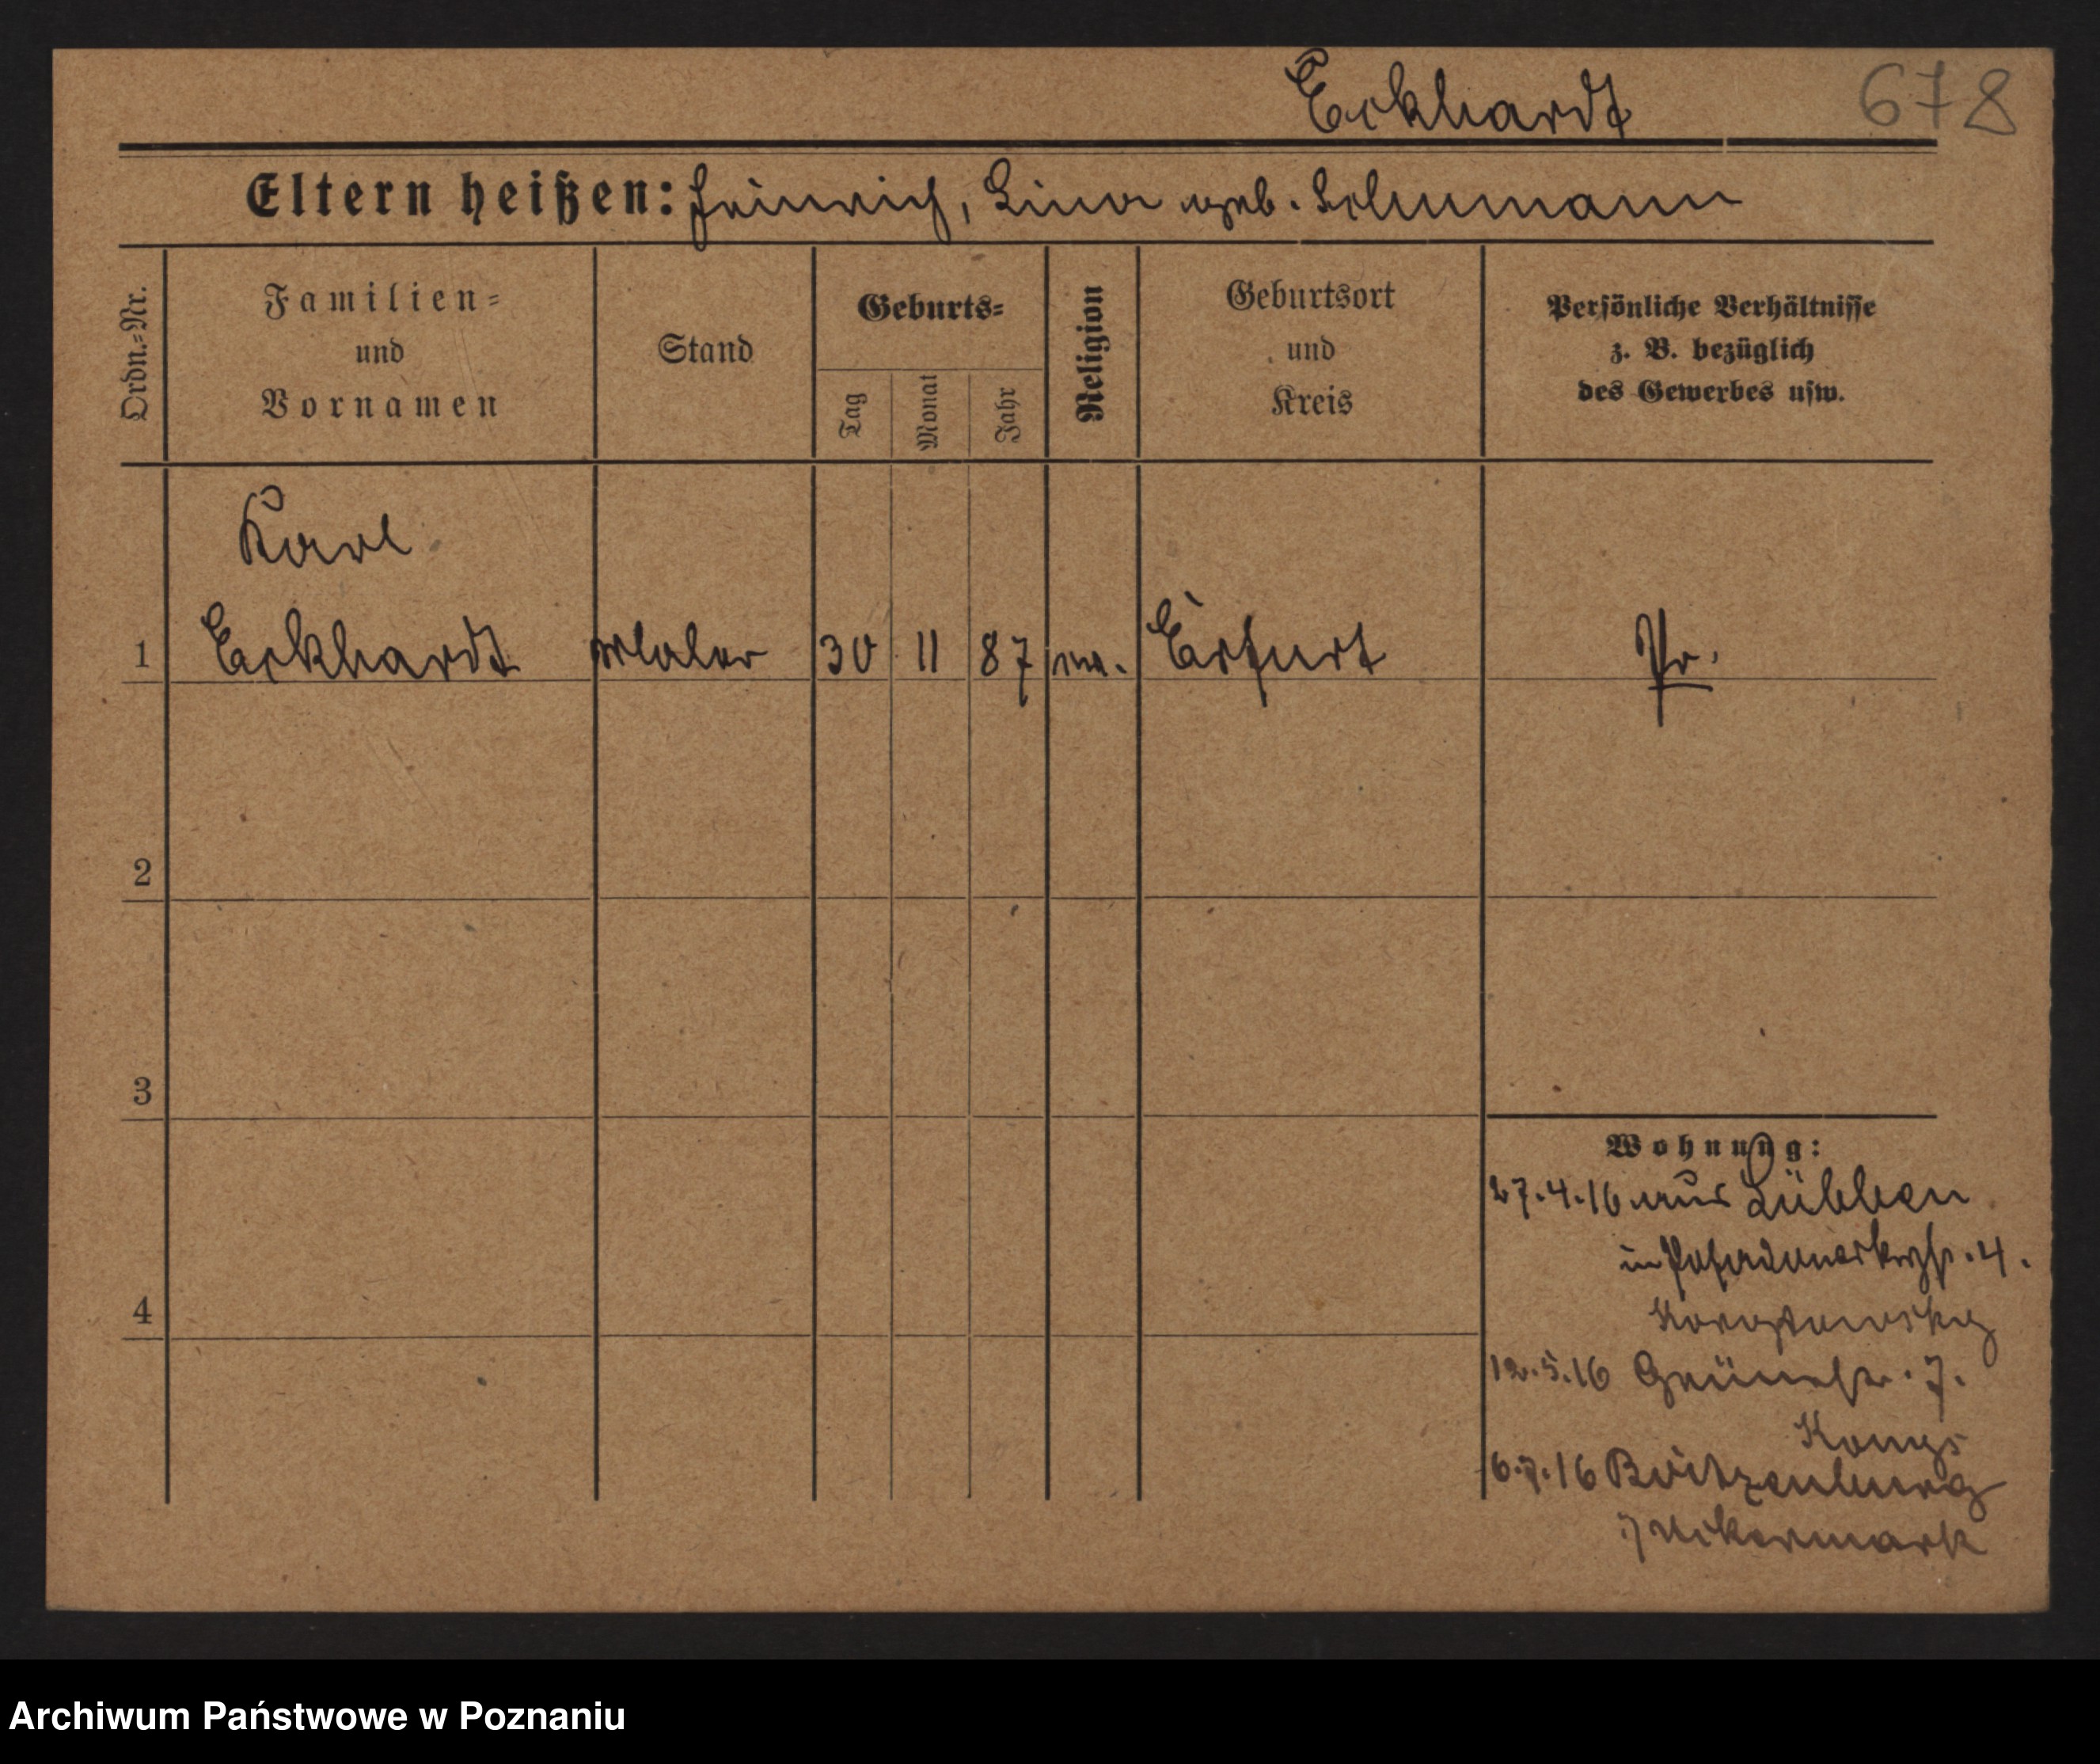 Eckhardt
678
Eltern heißen: Heinrich, Lina geb. Schumann
Ordn.-Nr.
Familien-
und
Vornamen
Stand
Geburts-
Tag
Monat
Jahr
Religion
Geburtsort
und
Kreis
Persönliche Verhältnisse
z. B. bezüglich
des Gewerbes usw.
Karl
1 Eckhardt Maler 30 11 87 ev. Erfurt Pr.
2
3
4
Wohnung:
27.4.16 aus Lübben
in 4.
12.5.16 Grünestr. 7.
6.7.16 Boitzenburg
Uckermark
Archiwum Państwowe w Poznaniu